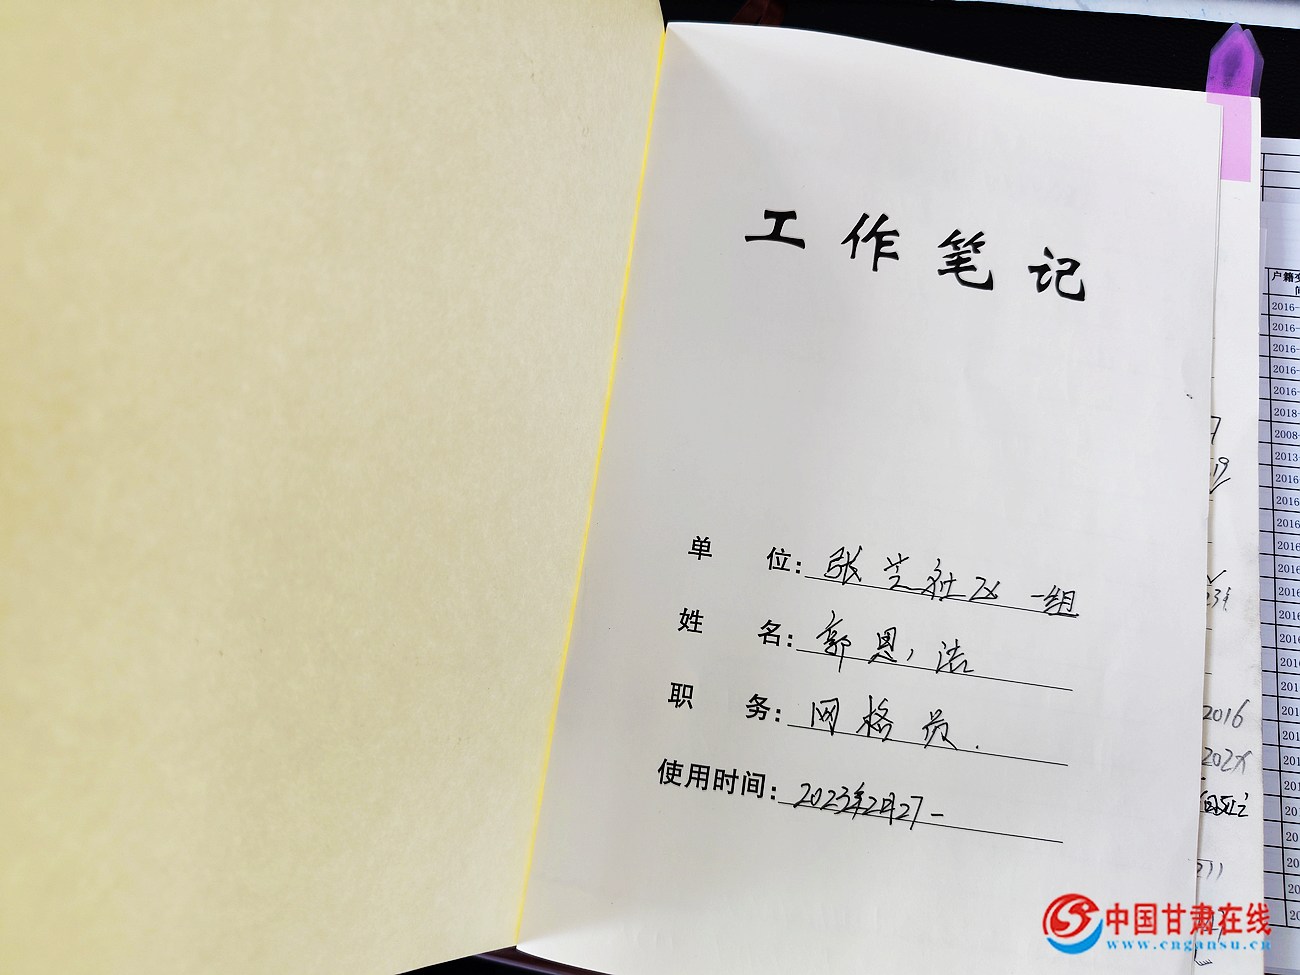 工作笔记
单 位：张芝社区一组
姓 名：郭恩洁
职 务：网格员.
使用时间：2023年2月27-
户籍变
间
2016-
2016-
2016-
2016-
2016-
2018-
2008-
2013-
2016
2016
2016
2016
2016
2016
2016
2016
2016
2016
202X
中国甘肃在线
www.cngansu.cn